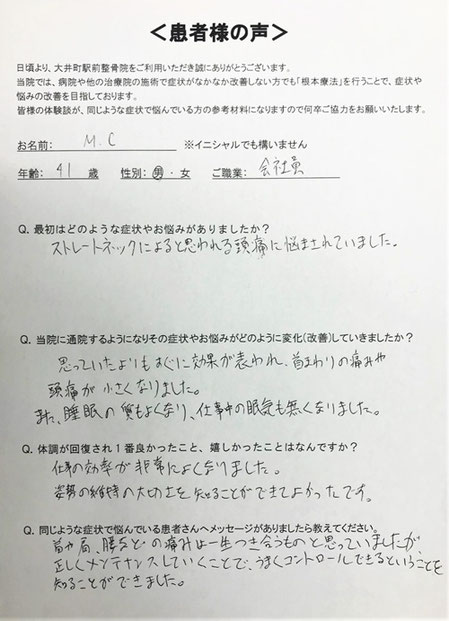 ＜患者様の声＞
日頃より、大井町駅前整骨院をご利用いただき誠にありがとうございます。
当院では、病院や他の治療院の施術で症状がなかなか改善しない方でも「根本療法」を行うことで、症状や
悩みの改善を目指しております。
皆様の体験談が、同じような症状で悩んでいる方の参考材料になりますので何卒ご協力をお願いいたします。
お名前： M.C ※イニシャルでも構いません
年齢： 41 歳 性別：男・女 ご職業： 会社員
Q. 最初はどのような症状やお悩みがありましたか？
ストレートネックによると思われる頭痛に悩まされていました。
Q. 当院に通院するようになりその症状やお悩みがどのように変化(改善)していきましたか？
思っていたよりもすぐに効果が表われ、首まわりの痛みや
頭痛が小さくなりました。
また、睡眠の質もよくなり、仕事中の眠気も無くなりました。
Q. 体調が回復され１番良かったこと、嬉しかったことはなんですか？
仕事の効率が非常によくなりました。
姿勢の維持の大切さを知ることができてよかったです。
Q. 同じような症状で悩んでいる患者さんへメッセージがありましたら教えてください。
首や肩、腰などの痛みは一生つき合うものと思っていましたが
正しくメンテナンスしていくことで、うまくコントロールできるということを
知ることができました。